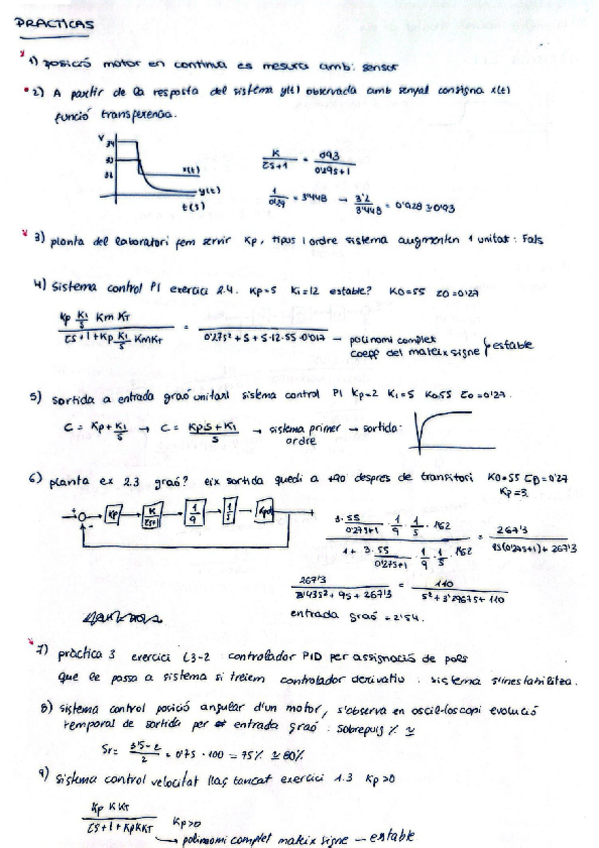 PRACTICAS
1) posició motor en continua es mesura amb: sensor
2) A partir de la resposta del sistema y(t) observada amb senyal consigna x(t)
funció transferencia.
V
x(t)
y(t)
t(s)
K / τs+1 = 0'93 / 0'29s+1
1 / 0'29 = 3'448 → 3'2 / 3'448 = 0'928 ≅ 0'93
3) planta del laboratori fem servir Kp, tipus i ordre sistema augmenten 1 unitat: Fals
4) Sistema control PI exercici 2.4. Kp=5 Ki=12 estable? K0=55 τ0=0'27
Kp Ki/s Km KT / τs+1+Kp Ki/s KmKT = / 0'27s²+s+5·12·55·0'017 — polinomi complet
coeff del mateix signe } estable
5) sortida a entrada graó unitari sistema control PI Kp=2 Ki=5 K0=55 τ0=0'27.
C = Kp+Ki/s → C = Kp·s+Ki / s → sistema primer ordre → sortida
6) planta ex 2.3 graó? eix sortida quedi a +90 despres de transitori K0=55 τ0=0'27
Kp=3.
+ - Kp K/τs+1 1/9 1/s Kpot
3·55 / 0'27s+1 · 1/9 · 1/s · 1'62 / 1+ 3·55 / 0'27s+1 · 1/9 · 1/s · 1'62 = 267'3 / 9s(0'27s+1)+267'3
267'3 / 2'43s²+9s+267'3 = 110 / s²+3'7s+110
entrada graó = 2'54.
7) pràctica 3 exercici L3-2 controlador PID per assignació de pols
que le passa a sistema si treiem controlador derivatiu: sistema s'inestabilitza.
8) sistema control posició angular d'un motor, s'observa en oscil·loscopi evolució
temporal de sortida per entrada graó: sobrepuig % ≅
Sr= 3'5-2 / 2 = 0'75 · 100 = 75% ≅ 80%
9) sistema control velocitat llaç tancat exercici 1.3 Kp>0
Kp K KT / τs+1+KpKKT Kp>0
→ polinomi complet mateix signe — estable